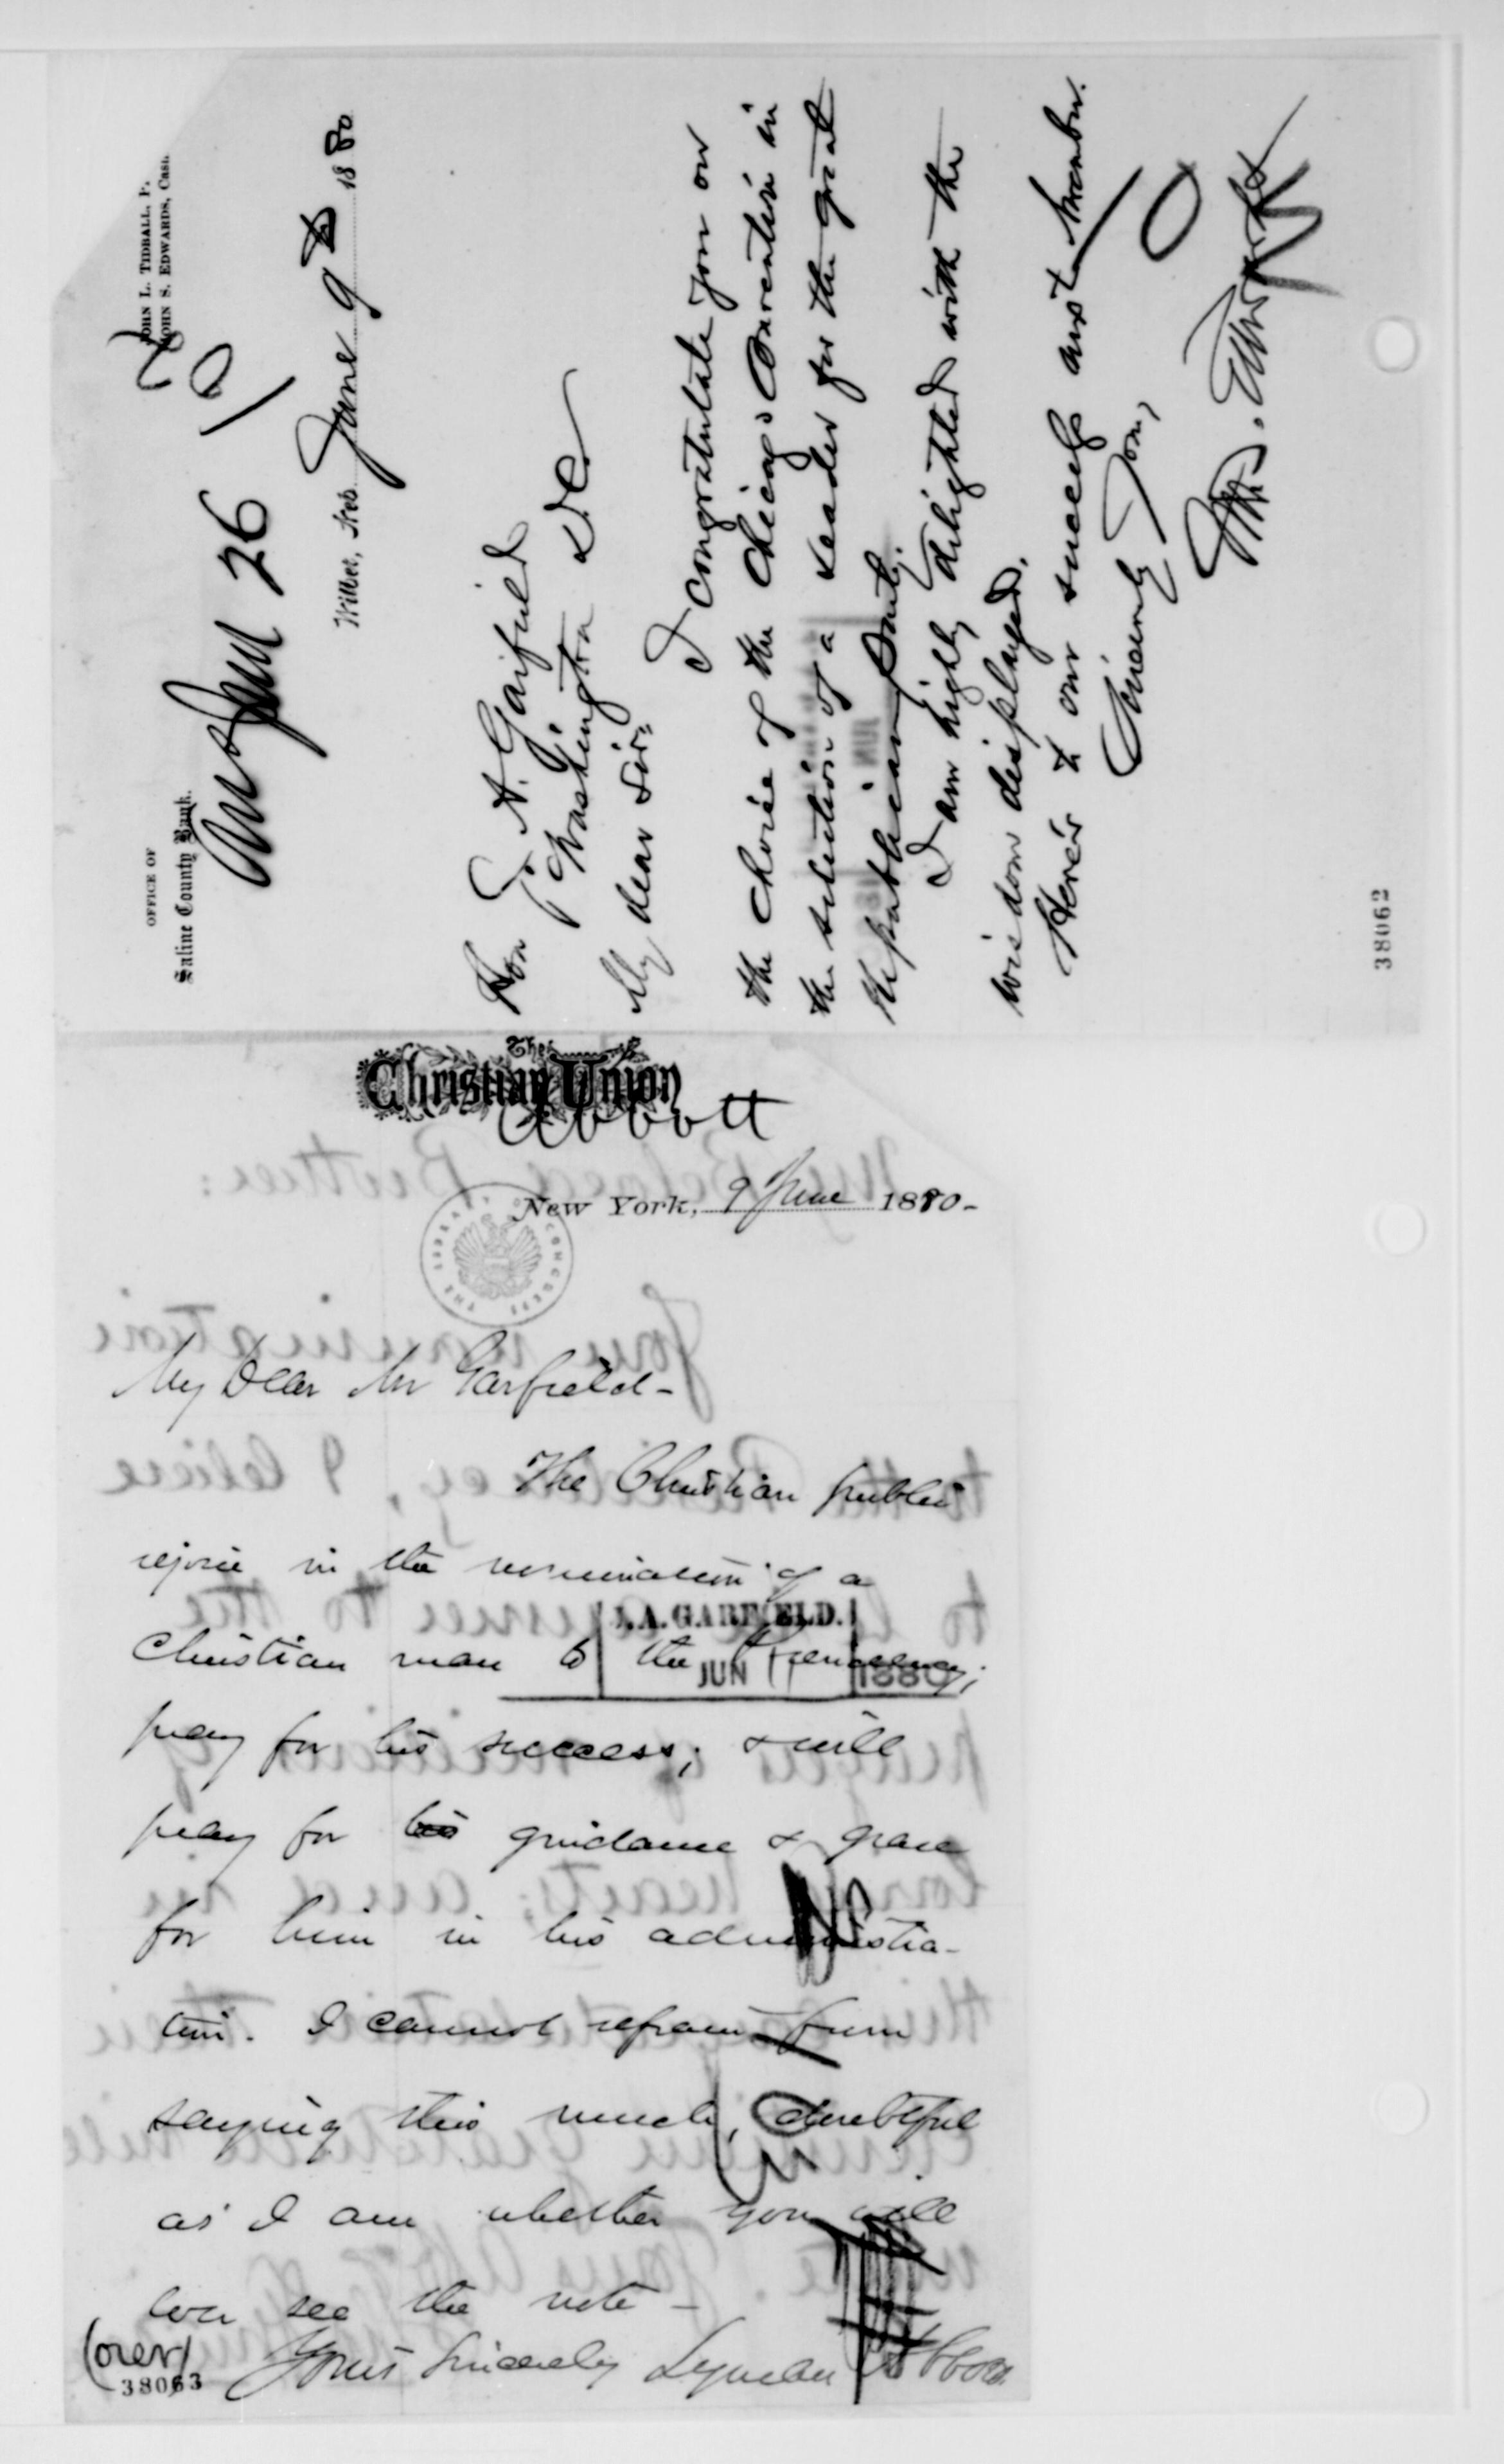 OFFICE OF
Saline County Bank.
JOHN L. TIDBALL, P.
JOHN S. EDWARDS, Cash
Ans Jun 26
Wilber, Neb. June 9th 1880
Hon J. A. Garfield
Washington D.C.
My dear Sir:
I congratulate you on
the choice of the Chicago Convention in
the selection of a leader for the great
Republican Party.
I am highly delighted with the
wisdom displayed.
Here's to our success next November.
Sincerely Yours,
Jno. S. Edwards
38062
The
Christian Union
Abbott
New York, 9 June 1880-
THE LIBRARY OF CONGRESS
My Dear Mr Garfield-
The Christian public
rejoice in the nomination of a
Christian man to the Presidency;
J. A. GARFIELD.
JUN 11 1880
pray for his success; & will
pray for his guidance & grace
for him in his administra-
tion. I cannot refrain from
saying this much, doubtful
as I am whether you will
ever see the note -
Yours Sincerely Lyman Abbott
(over)
38063